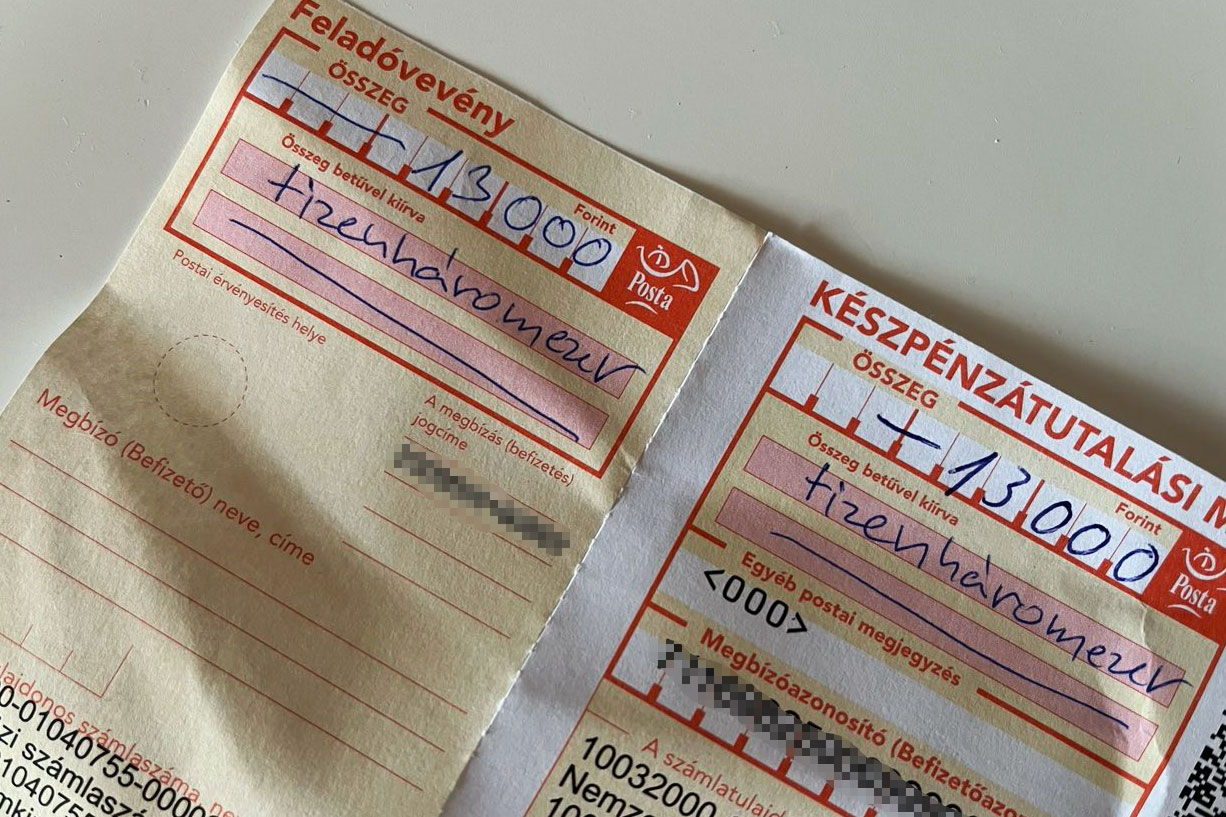 Feladóvevény
ÖSSZEG
13000
Összeg betűvel kiírva
Forint
tizenháromezer
Posta
Postai érvényesítés helye
A megbízás (befizetés)
jogcíme
Megbízó (Befizető) neve, címe
számlaszáma,
0-01040755-0000
számlasz
KÉSZPÉNZÁTUTALÁSI M
ÖSSZEG
13000
Összeg betűvel kiírva
Forint
tizenháromezer
Posta
Egyéb postai megjegyzés
<000>
Megbízóazonosító (Befizetőazon
A számlatulajd
10032000
Nemz